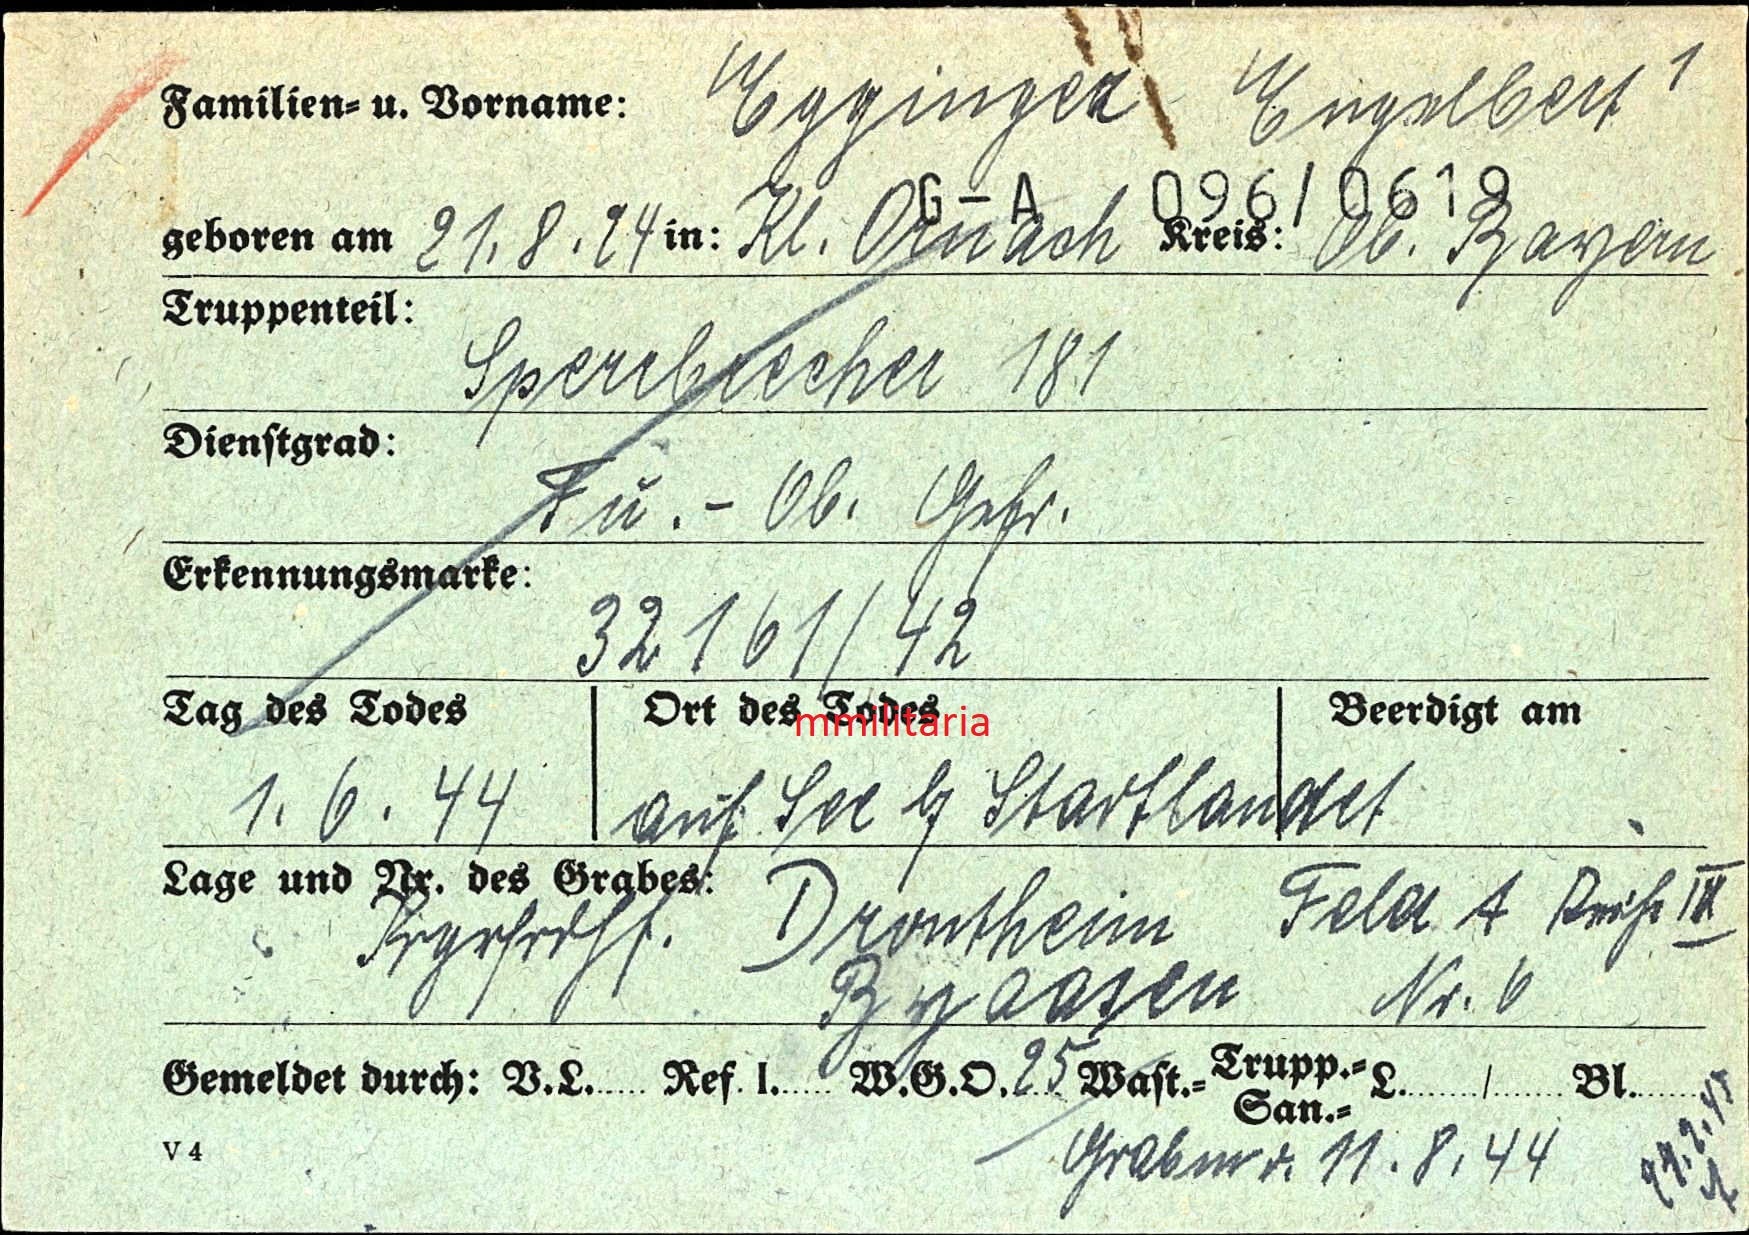 Familien- u. Vorname: Egginger Engelbert 1
G-A 096/0619
geboren am 21.8.24 in: Kl. Ornach Kreis: Ob. Bayern
Truppenteil:
Sperrbrecher 181
Dienstgrad:
Fu.- Ob. Gefr.
Erkennungsmarke:
32161/42
Tag des Todes Ort des Todes Beerdigt am
mmilitaria
1.6.44 auf See b/ Stadtlandet
Lage und Nr. des Grabes:
Drontheim Feld A Reihe
Byaasen Nr. 6
Gemeldet durch: V.L. Ref. I. W.G.O. 25 Wast.= Trupp.= L. / Bl.
San.=
V 4
11.8.44